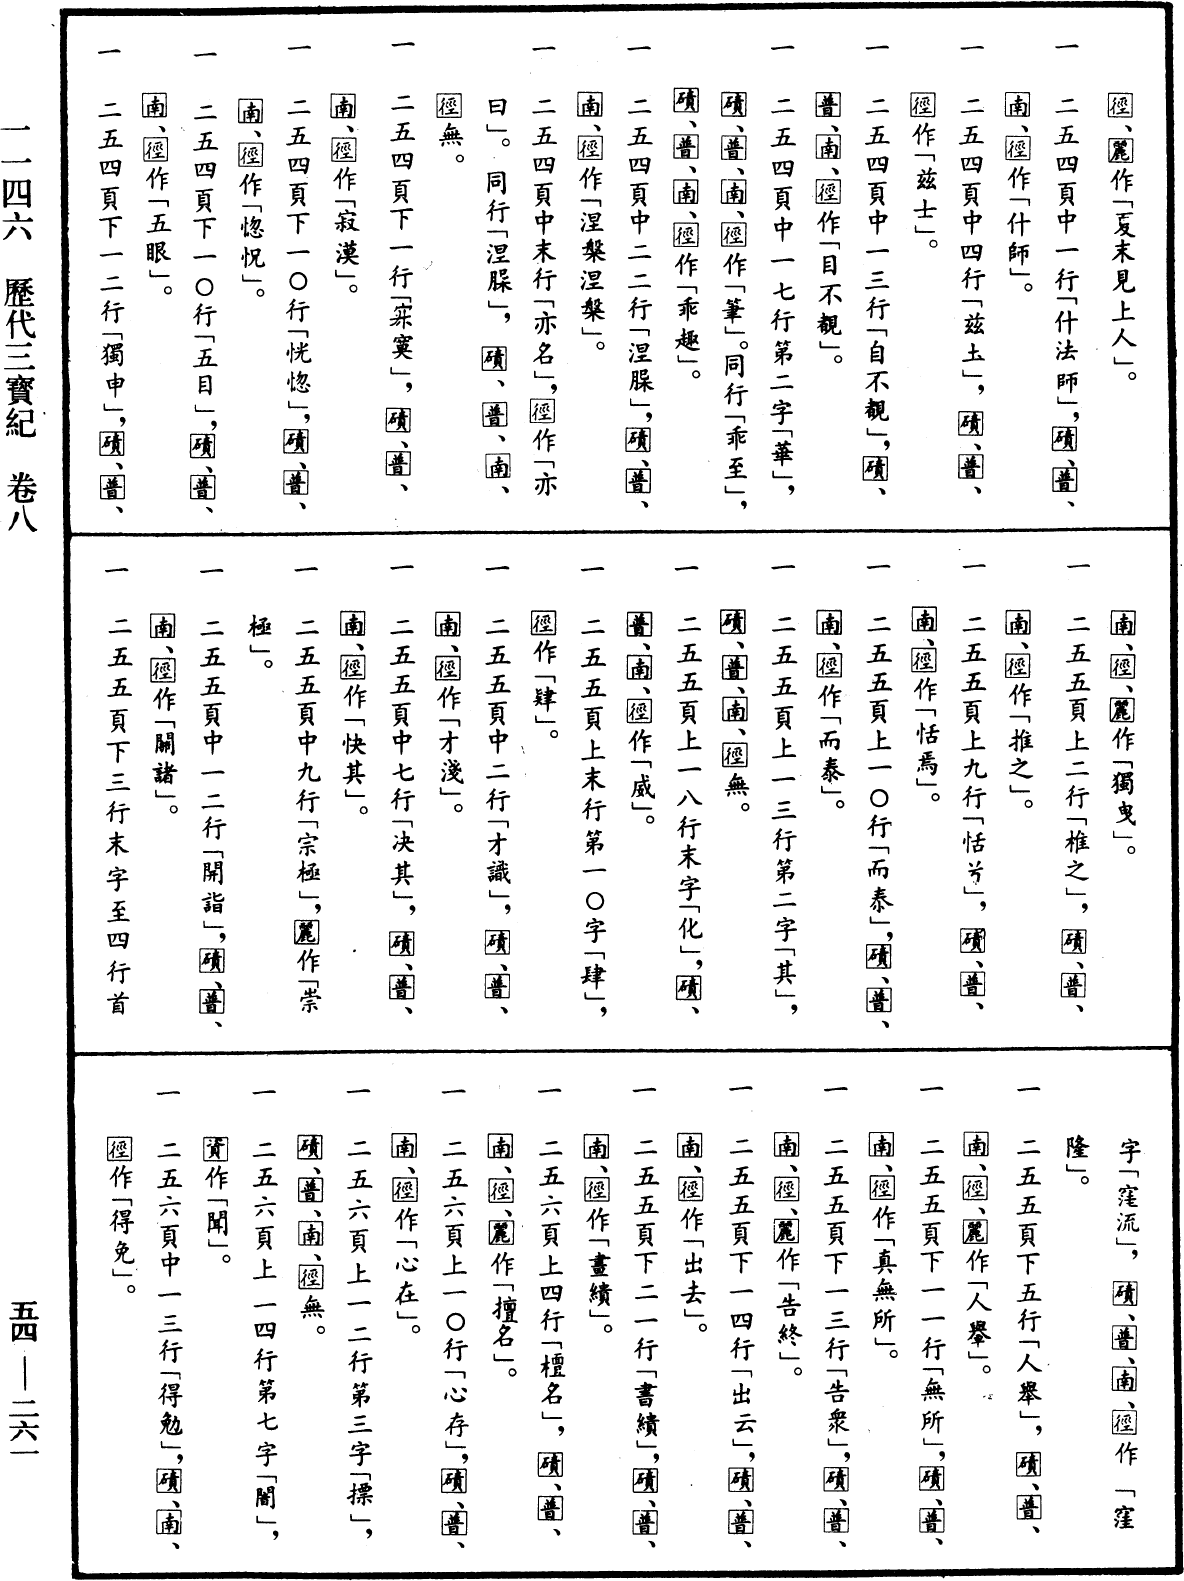 徑、麗作「夏末見上人」。
一 二五四頁中一行「什法師」，磧、普、
南、徑作「什師」。
一 二五四頁中四行「兹土」，磧、普、
徑作「兹士」。
一 二五四頁中一三行「自不覩」，磧、
普、南、徑作「目不覩」。
一 二五四頁中一七行第二字「華」，
磧、普、南、徑作「筆」。同行「乖至」，
磧、普、南、徑作「乖趣」。
一 二五四頁中二二行「涅𣩠」，磧、普、
南、徑作「涅槃涅槃」。
一 二五四頁中末行「亦名」，徑作「亦
曰」。同行「涅𣩠」，磧、普、南、
徑無。
一 二五四頁下一行「㝥寞」，磧、普、
南、徑作「寂漠」。
一 二五四頁下一〇行「恍惚」，磧、普、
南、徑作「惚怳」。
一 二五四頁下一〇行「五目」，磧、普、
南、徑作「五眼」。
一 二五四頁下一二行「獨申」，磧、普、
南、徑、麗作「獨曳」。
一 二五五頁上二行「椎之」，磧、普、
南、徑作「推之」。
一 二五五頁上九行「恬兮」，磧、普、
南、徑作「恬焉」。
一 二五五頁上一〇行「而泰」，磧、普、
南、徑作「而泰」。
一 二五五頁上一三行第二字「其」，
磧、普、南、徑無。
一 二五五頁上一八行末字「化」，磧、
普、南、徑作「威」。
一 二五五頁上末行第一〇字「肆」，
徑作「肄」。
一 二五五頁中二行「才識」，磧、普、
南、徑作「才淺」。
一 二五五頁中七行「决其」，磧、普、
南、徑作「快其」。
一 二五五頁中九行「宗極」，麗作「崇
極」。
一 二五五頁中一二行「開詣」，磧、普、
南、徑作「關諸」。
一 二五五頁下三行末字至四行首
字「窪流」，磧、普、南、徑作「窪
隆」。
一 二五五頁下五行「人舉」，磧、普、
南、徑、麗作「人轝」。
一 二五五頁下一一行「無所」，磧、普、
南、徑作「真無所」。
一 二五五頁下一三行「告衆」，磧、普、
南、徑、麗作「告終」。
一 二五五頁下一四行「出云」，磧、普、
南、徑作「出去」。
一 二五五頁下二一行「書績」，磧、普、
南、徑作「畫績」。
一 二五六頁上四行「檀名」，磧、普、
南、徑、麗作「擅名」。
一 二五六頁上一〇行「心存」，磧、普、
南、徑作「心在」。
一 二五六頁上一二行第三字「摽」，
磧、普、南、徑無。
一 二五六頁上一四行第七字「闍」，
資作「聞」。
一 二五六頁中一三行「得勉」，磧、南、
徑作「得免」。
一一四六 歷代三寶紀 卷八
五四—二六一